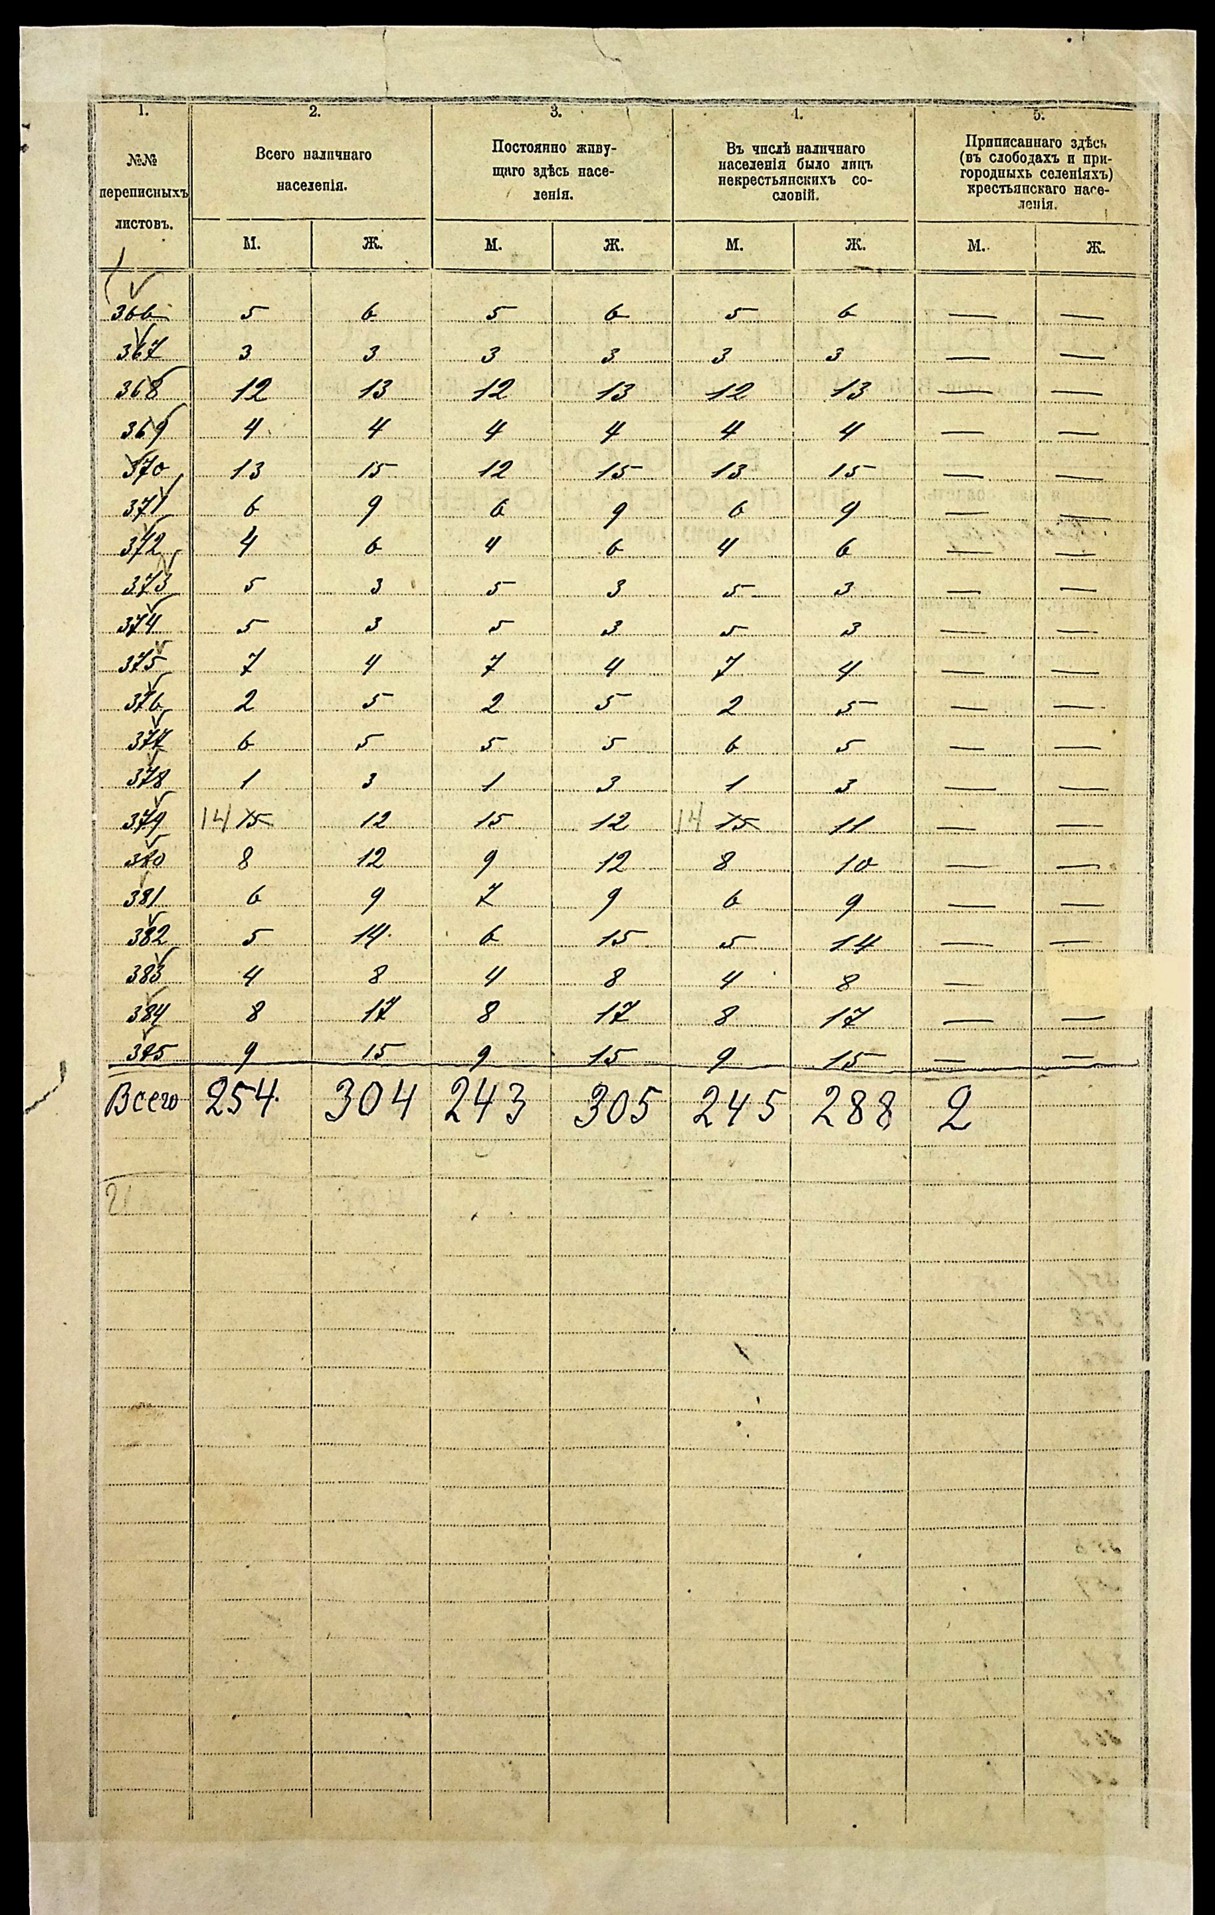 1. 2. 3. 4. 5.
№№ переписныхъ листовъ.
Всего наличнаго населенія.
Постоянно живущаго здѣсь населенія.
Въ числѣ наличнаго населенія было лицъ некрестьянскихъ сословій.
Приписаннаго здѣсь (въ слободахъ и пригородныхъ селеніяхъ) крестьянскаго населенія.
М. Ж. М. Ж. М. Ж. М. Ж.
366 5 6 5 6 5 6 — —
367 3 3 3 3 3 3 — —
368 12 13 12 13 12 13 — —
369 4 4 4 4 4 4 — —
370 13 15 12 15 13 15 — —
371 6 9 6 9 6 9 — —
372 4 6 4 6 4 6 — —
373 5 3 5 3 5 3 — —
374 5 3 5 3 5 3 — —
375 7 4 7 4 7 4 — —
376 2 5 2 5 2 5 — —
377 6 5 5 5 6 5 — —
378 1 3 1 3 1 3 — —
379 14 15 12 15 12 14 15 11 — —
380 8 12 9 12 8 10 — —
381 6 9 7 9 6 9 — —
382 5 14 6 15 5 14 — —
383 4 8 4 8 4 8 —
384 8 17 8 17 8 17 — —
385 9 15 9 15 9 15 — —
Всего 254 304 243 305 245 288 2